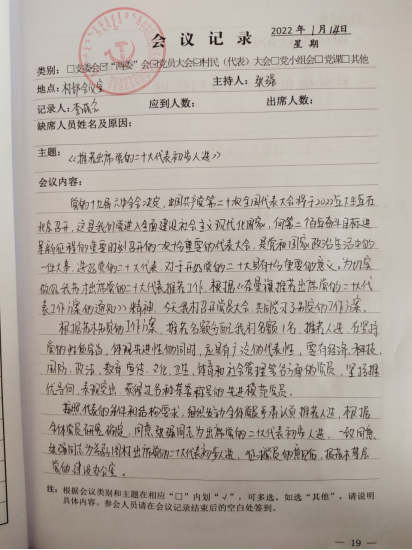 会议记录
2022年1月14日
星期
类别：□支委会☑“两委”会□党员大会□村民（代表）大会□党小组会□党课□其他
地点：村部会议室 主持人：张强
记录人： 应到人数： 出席人数：
缺席人员姓名及原因：
主题：
《推荐出席党的二十大代表初步人选》
会议内容：
党的十九届六中全会决定，中国共产党第二十次全国代表大会将于2022年下半年在
北京召开，这是我们党进入全面建设社会主义现代化国家，向第二个百年奋斗目标进
军新征程的重要时刻召开的一次十分重要的代表大会，是党和国家政治生活中的
一件大事，选好党的二十大代表，对于开好党的二十大具有十分重要的意义，为切实
做好我苏木出席党的二十大代表推荐工作，根据《 推荐出席党的二十大代
表工作方案的通知》精神，今天我们召开党员大会，共同学习了 的工作方案
根据苏木党委的工作方案，推荐名额分配我村名额1名，推荐人选，在坚持
党的性质宗旨，体现先进性的同时，应具有广泛的代表性，要有经济、科技、
国防、政法、教育、宣传、文化、卫生、体育和社会管理等各方面的党员，坚持推
优导向，表现突出、获得过各种荣誉称号的先进模范党员
按照代表的条件和结构要求，组织发动全体党员酝酿推荐人选，根据
全体党员研究确定，同意张强同志为出席党的二十大代表初步人选，一致同意
张强同志为 村出席党的二十大代表初步人选，征求党员的意见后，报苏木基层
党的建设办公室。
注：根据会议类别和主题在相应“□”内划“√”，可多选，如选“其他”，请说明
具体内容。参会人员请在会议记录结束后的空白处签到。
— 19 —